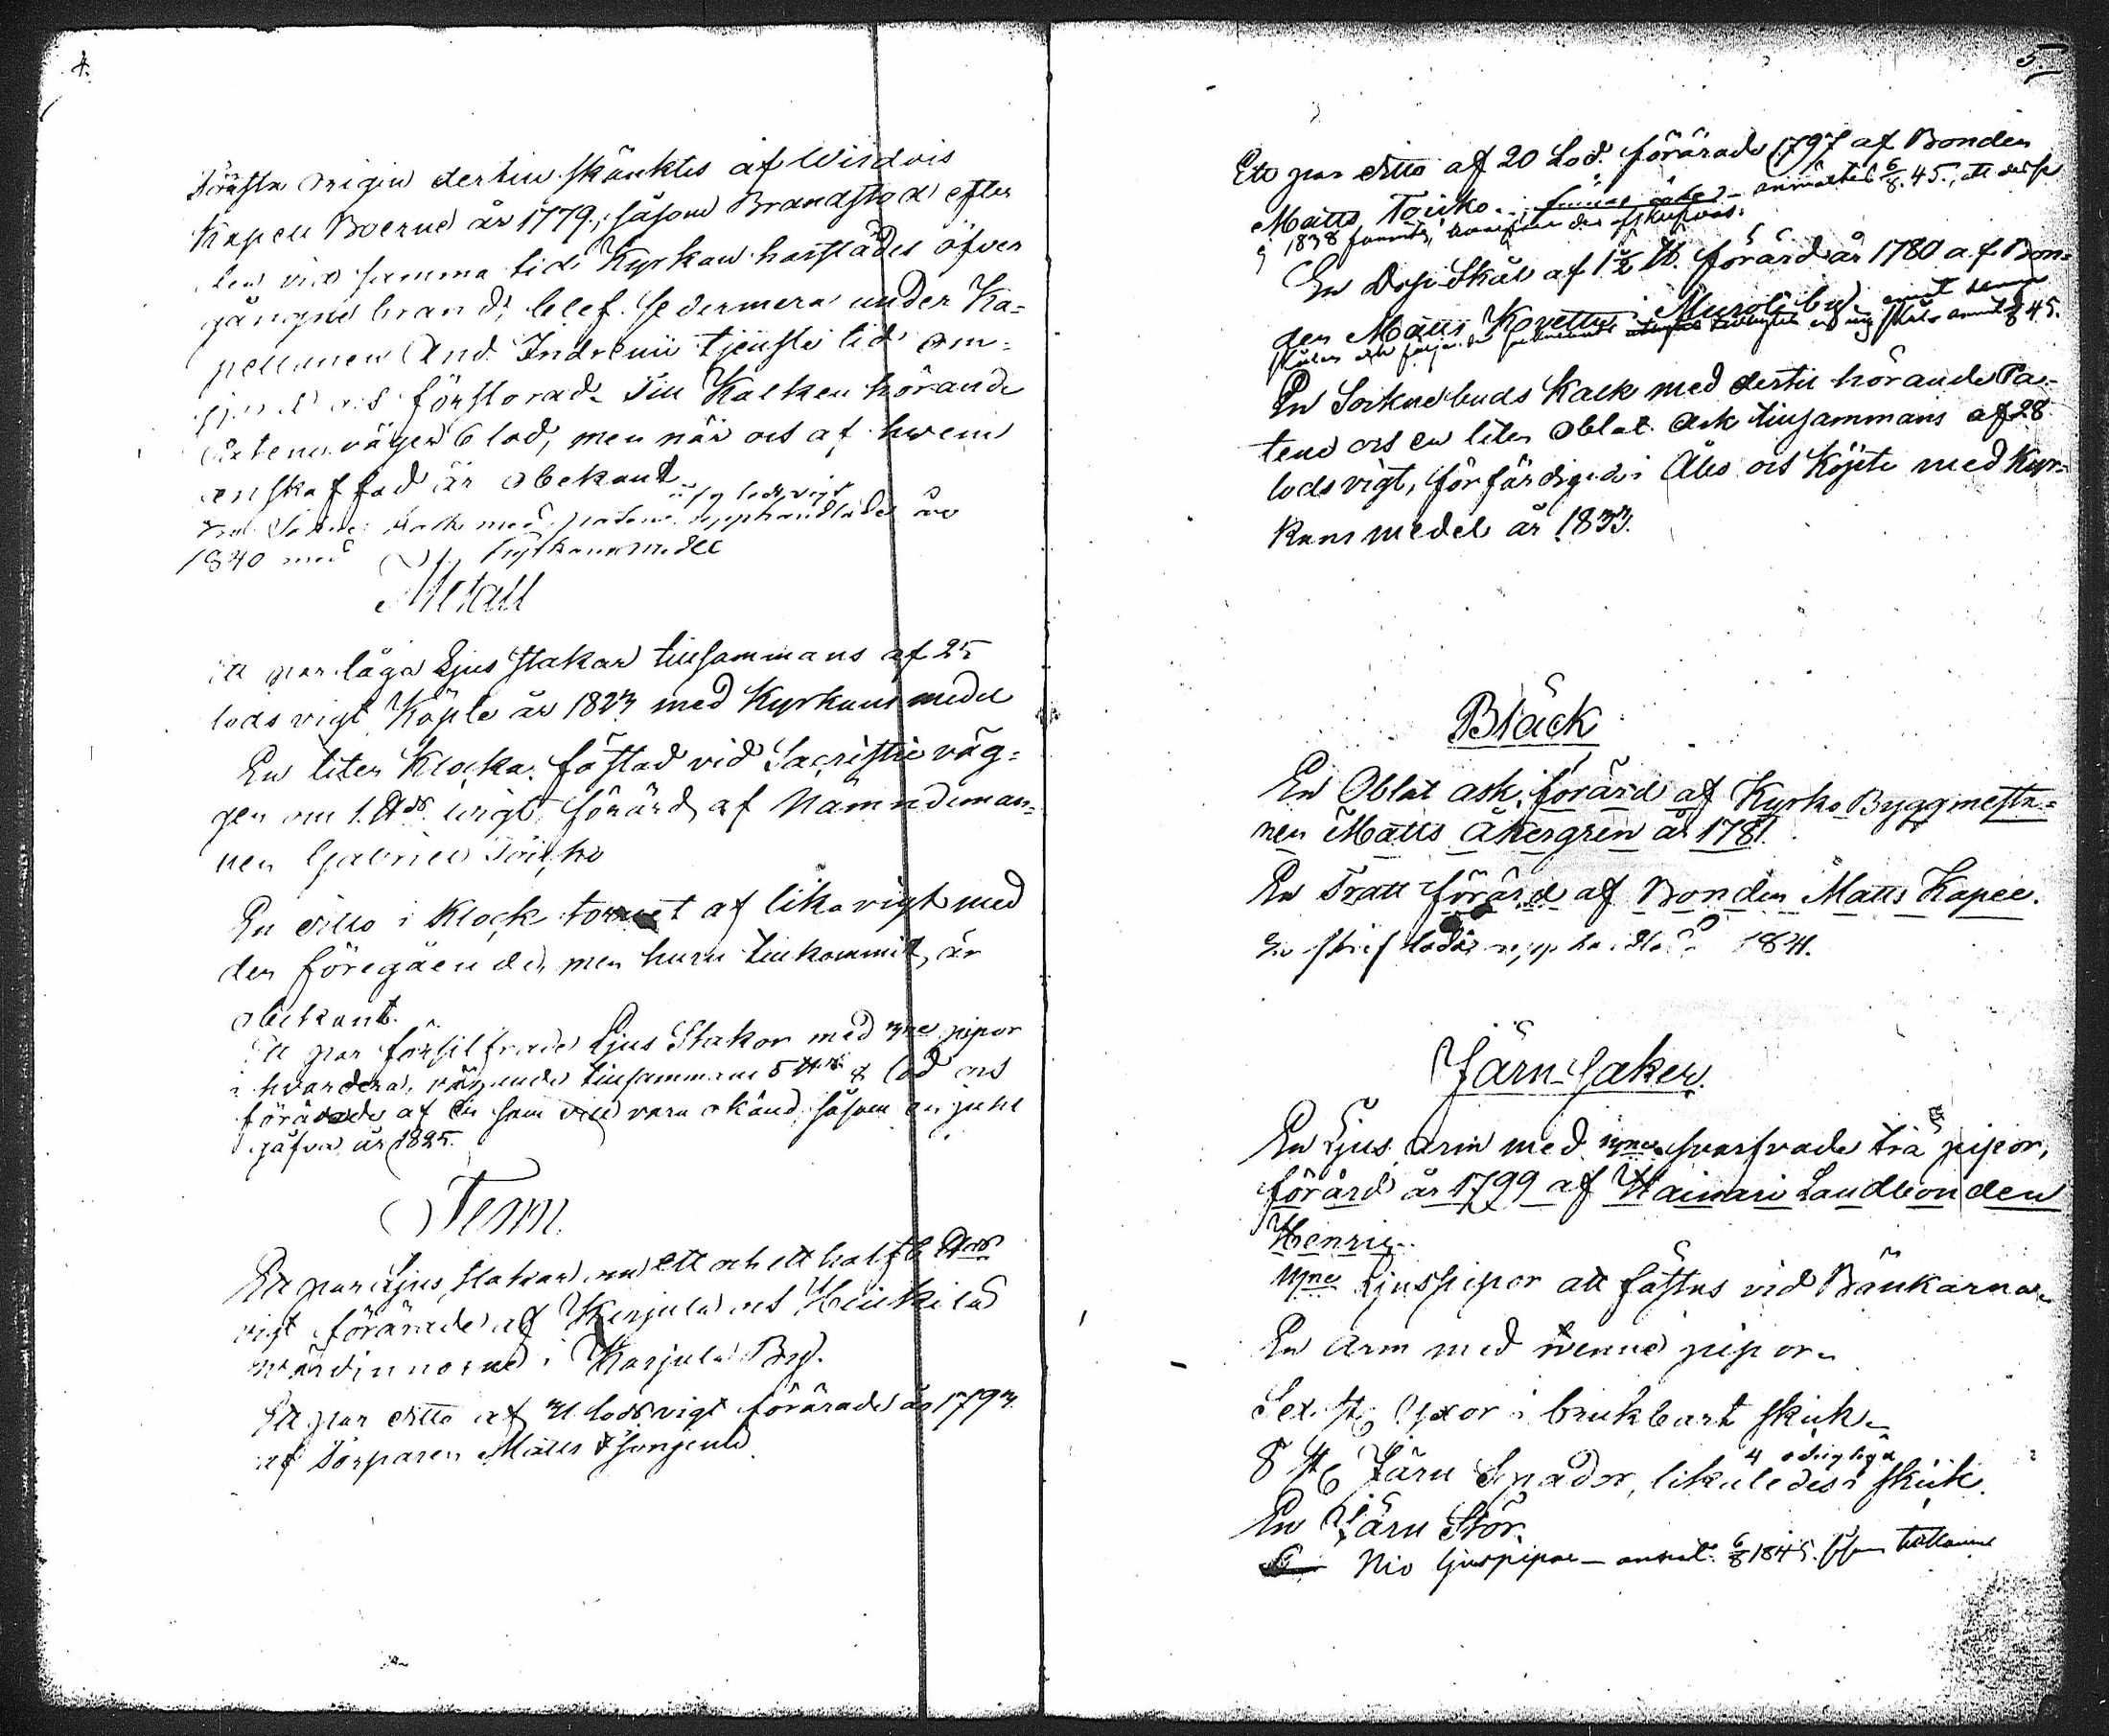 4.
Första origin dertill skänktes af Wirdois
Kapell Boerne år 1779, såsom Brandstod efter
den vid samma tid Kyrkan härstädes öfver
gångne brand; blef sedermera under Ka=
pellanen And. Indrenii tjenste tid om=
och förstorad. Till Kalken hörande
Patenen väger 6 lod, men när och af hvem
anskaffad är obekant
Kalk med paten upphandlades åro
1840 med Kyrkans medel
Metall
Ett par låga Ljus stakar tillsammans af 25
lods vigt Köpte år 1823 med Kyrkans medel
En liten Klocka fästad vid Sacristie väg=
gen om 1. ℔ds wigt, förärd af Nämndeman=
nen Gabriel Toiko
En ditto i Klock tornet af lika vigt med
den föregående, men huru tillkommit, är
obekant.
Ett par försilfrade Ljus Stakor med 3ne pipor
i hvardera, vägende tillsammans 5 ℔ 8 lod och
förärade af en som vill vara okänd, såsom en Juhl
gåfva år 1825.
Tenn
Ett par Ljus stakar om ett och ett halft ℔ds
vigt förärade af Kerjula och Heikkilä
wärdinnorne i Karjula By.
Ett par ditto af 31 lods vigt förärade år 1793
af Torparen Matts
5.
Ett par ditto af 20 Lod. förärade 1797 af Bonden
Matts Toiko. anmältes 6/8. 45., att desse
ej 1838 funnits,
En Dop Skål af 1½ ℔. förärd år 1780 af Bon=
den Matts Kovettu i Muroli by.
skålen 45.
En Sockne buds Kalk med dertill hörande Pa=
tene och en liten Oblat Ask tillsammans af 28
lods vigt, förfärdigade i Åbo och Köpte med Kyr=
kans medel år 1833.
Bläck
En Oblat ask, förärd af Kyrko Byggmesta=
ren Matts Åkergren år 1781.
En Tratt förärd af Bonden Matts Kapee.
En 1841.
Järn-Saker.
En Ljus arm med 3ne svarfvade trä pipor,
förärd år 1799 af Wainari Landbonden
Henric.
3ne Ljuspipor att fästas vid Bänkarna.
En Arm med tvenne pipor.
Sex st. Yxor i brukbart skick.
4 odugliga
8 st. Järn Spador, likaledes i skick.
En Järn Stör.
Nio ljuspipor – anmält. 6/8 1845.